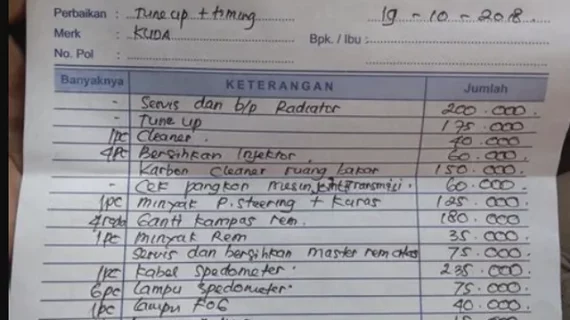 Perbaikan : Tune up + timing 19 - 10 - 2018
Merk : KUDA Bpk. / Ibu :
No. Pol :
Banyaknya KETERANGAN Jumlah
- Servis dan b/p Radiator 200.000.
- Tune up 175.000
1pc Cleaner. 40.000
4pc Bersihkan Injektor. 60.000.
Karbon Cleaner ruang bakar 150.000
- Cek pangkon mesin, transmisi. 60.000
1pc minyak P. Steering + Kuras 125.000
4 roda Ganti kampas rem. 180.000
1pc minyak Rem 35.000
Servis dan bersihkan master rem atas 75.000
1pc Kabel Spedometer. 235.000
6pc Lampu Spedometer. 75.000
1pc Lampu FOG 40.000